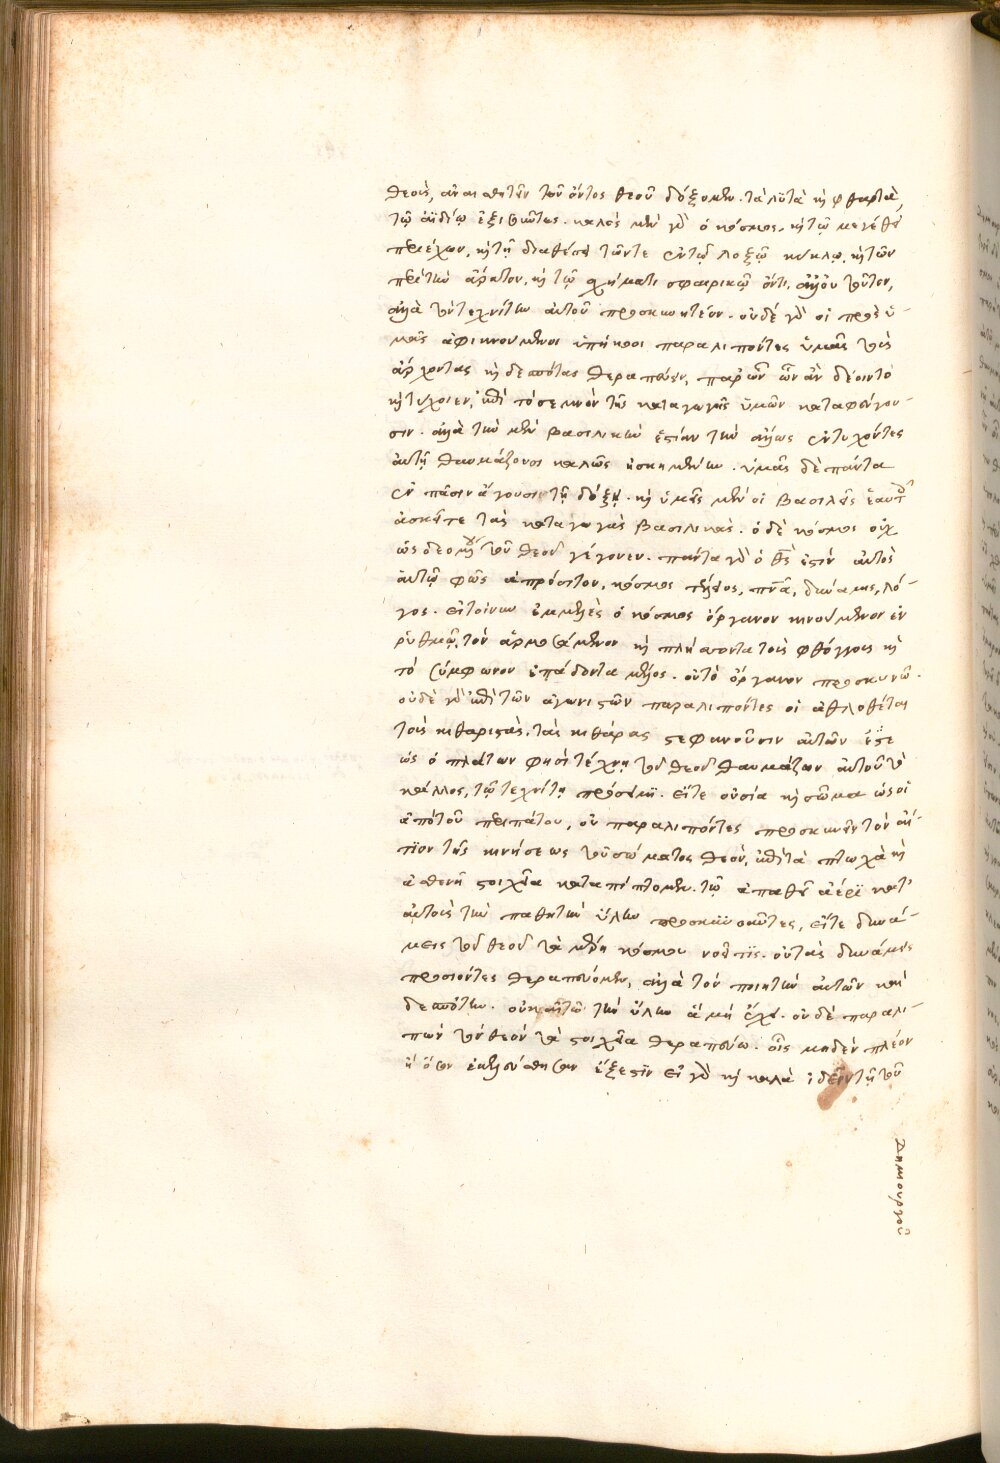 θεοῖς, ἀναισθητεῖν τοῦ ὄντος θεοῦ δόξομεν. τὰ λυτὰ καὶ φθαρτὰ,
τῷ ἀϊδίῳ ἐξισοῦντες. καλὸς μὲν γὰρ ὁ κόσμος. καὶ τῷ μεγέθει
περιέχων, καὶ τῇ διαθέσει τῶν τε ἐν τῷ λοξῷ κύκλῳ. καὶ τῶν
περὶ τὴν ἄρκτον, καὶ τῷ σχήματι σφαιρικῷ ὄντι, ἀλλ' οὐ τοῦτον,
ἀλλὰ τὸν τεχνίτην αὐτοῦ προσκυνητέον. οὐδὲ γὰρ οἱ πρὸς ὑ-
μᾶς ἀφικνούμενοι ὑπήκοοι παραλιπόντες ὑμᾶς τοὺς
ἄρχοντας καὶ δεσπότας θεραπεύειν, παρ' ὧν ὧν ἂν δέοιντο
καὶ τύχοιεν, ἐπὶ τὸ σεμνὸν τῆς καταγωγῆς ὑμῶν καταφεύγου-
σιν. ἀλλὰ τὴν μὲν βασιλικὴν ἑστίαν τὴν ἄλλως ἐντυχόντες
αὐτῇ θαυμάζουσι καλῶς ἠσκημένην. ὑμᾶς δὲ πάντα
ἐν πᾶσιν ἄγουσι τῇ δόξῃ. καὶ ὑμεῖς μὲν οἱ βασιλεῖς ἑαυτοῖς
ἀσκεῖτε τὰς καταγωγὰς βασιλικάς. ὁ δὲ κόσμος οὐχ
ὡς δεομένου τοῦ θεοῦ γέγονεν. πάντα γὰρ ὁ θς ἐστὶν αὐτὸς
αὐτῷ φῶς ἀπρόσιτον, κόσμος τέλειος, πνα, δύναμις, λό-
γος. εἰ τοίνυν ἐμμελὲς ὁ κόσμος ὄργανον κινούμενον ἐν
ῥυθμῷ, τὸν ἁρμοσάμενον καὶ πλήσσοντα τοὺς φθόγγους καὶ
τὸ σύμφωνον ἐπάδοντα μέλος. οὐ τὸ ὄργανον προσκυνῶ.
οὐδὲ γὰρ ἐπὶ τῶν ἀγωνιστῶν παραλιπόντες οἱ ἀθλοθέται
τοὺς κιθαριστὰς, τὰς κιθάρας στεφανοῦσιν αὐτῶν εἴτε
ὡς ὁ πλάτων φησὶ τέχνη τοῦ θεοῦ θαυμάζων αὐτοῦ τὸ
κάλλος, τῷ τεχνίτῃ πρόσειμι. εἴτε οὐσία καὶ σῶμα ὡς οἱ
ἀπὸ τοῦ περιπάτου, οὐ παραλιπόντες προσκυνεῖν τὸν αἴ-
τιον τῆς κινήσεως τοῦ σώματος θεὸν, ἐπὶ τὰ πτωχὰ καὶ
ἀσθενῆ στοιχεῖα καταπίπτομεν. τῷ ἀπαθεῖ ἀέρι κατ'
αὐτοὺς τὴν παθητὴν ὕλην προσκυνοῦντες, εἴτε δυνά-
μεις τοῦ θεοῦ τὰ μέρη κόσμου νοεῖ τις. οὐ τὰς δυνάμεις
προσιόντες θεραπεύομεν, ἀλλὰ τὸν ποιητὴν αὐτῶν καὶ
δεσπότην. οὐκ αἰτῶ τὴν ὕλην ἃ μὴ ἔχει. οὐδὲ παραλι-
πὼν τὸν θεὸν τὰ στοιχεῖα θεραπεύω. οἷς μηδὲν πλέον
ἢ ὅσον ἐκελεύσθησαν ἔξεστιν εἰ γὰρ καὶ καλὰ ἰδεῖν τῇ τοῦ
δημιουργοῦ